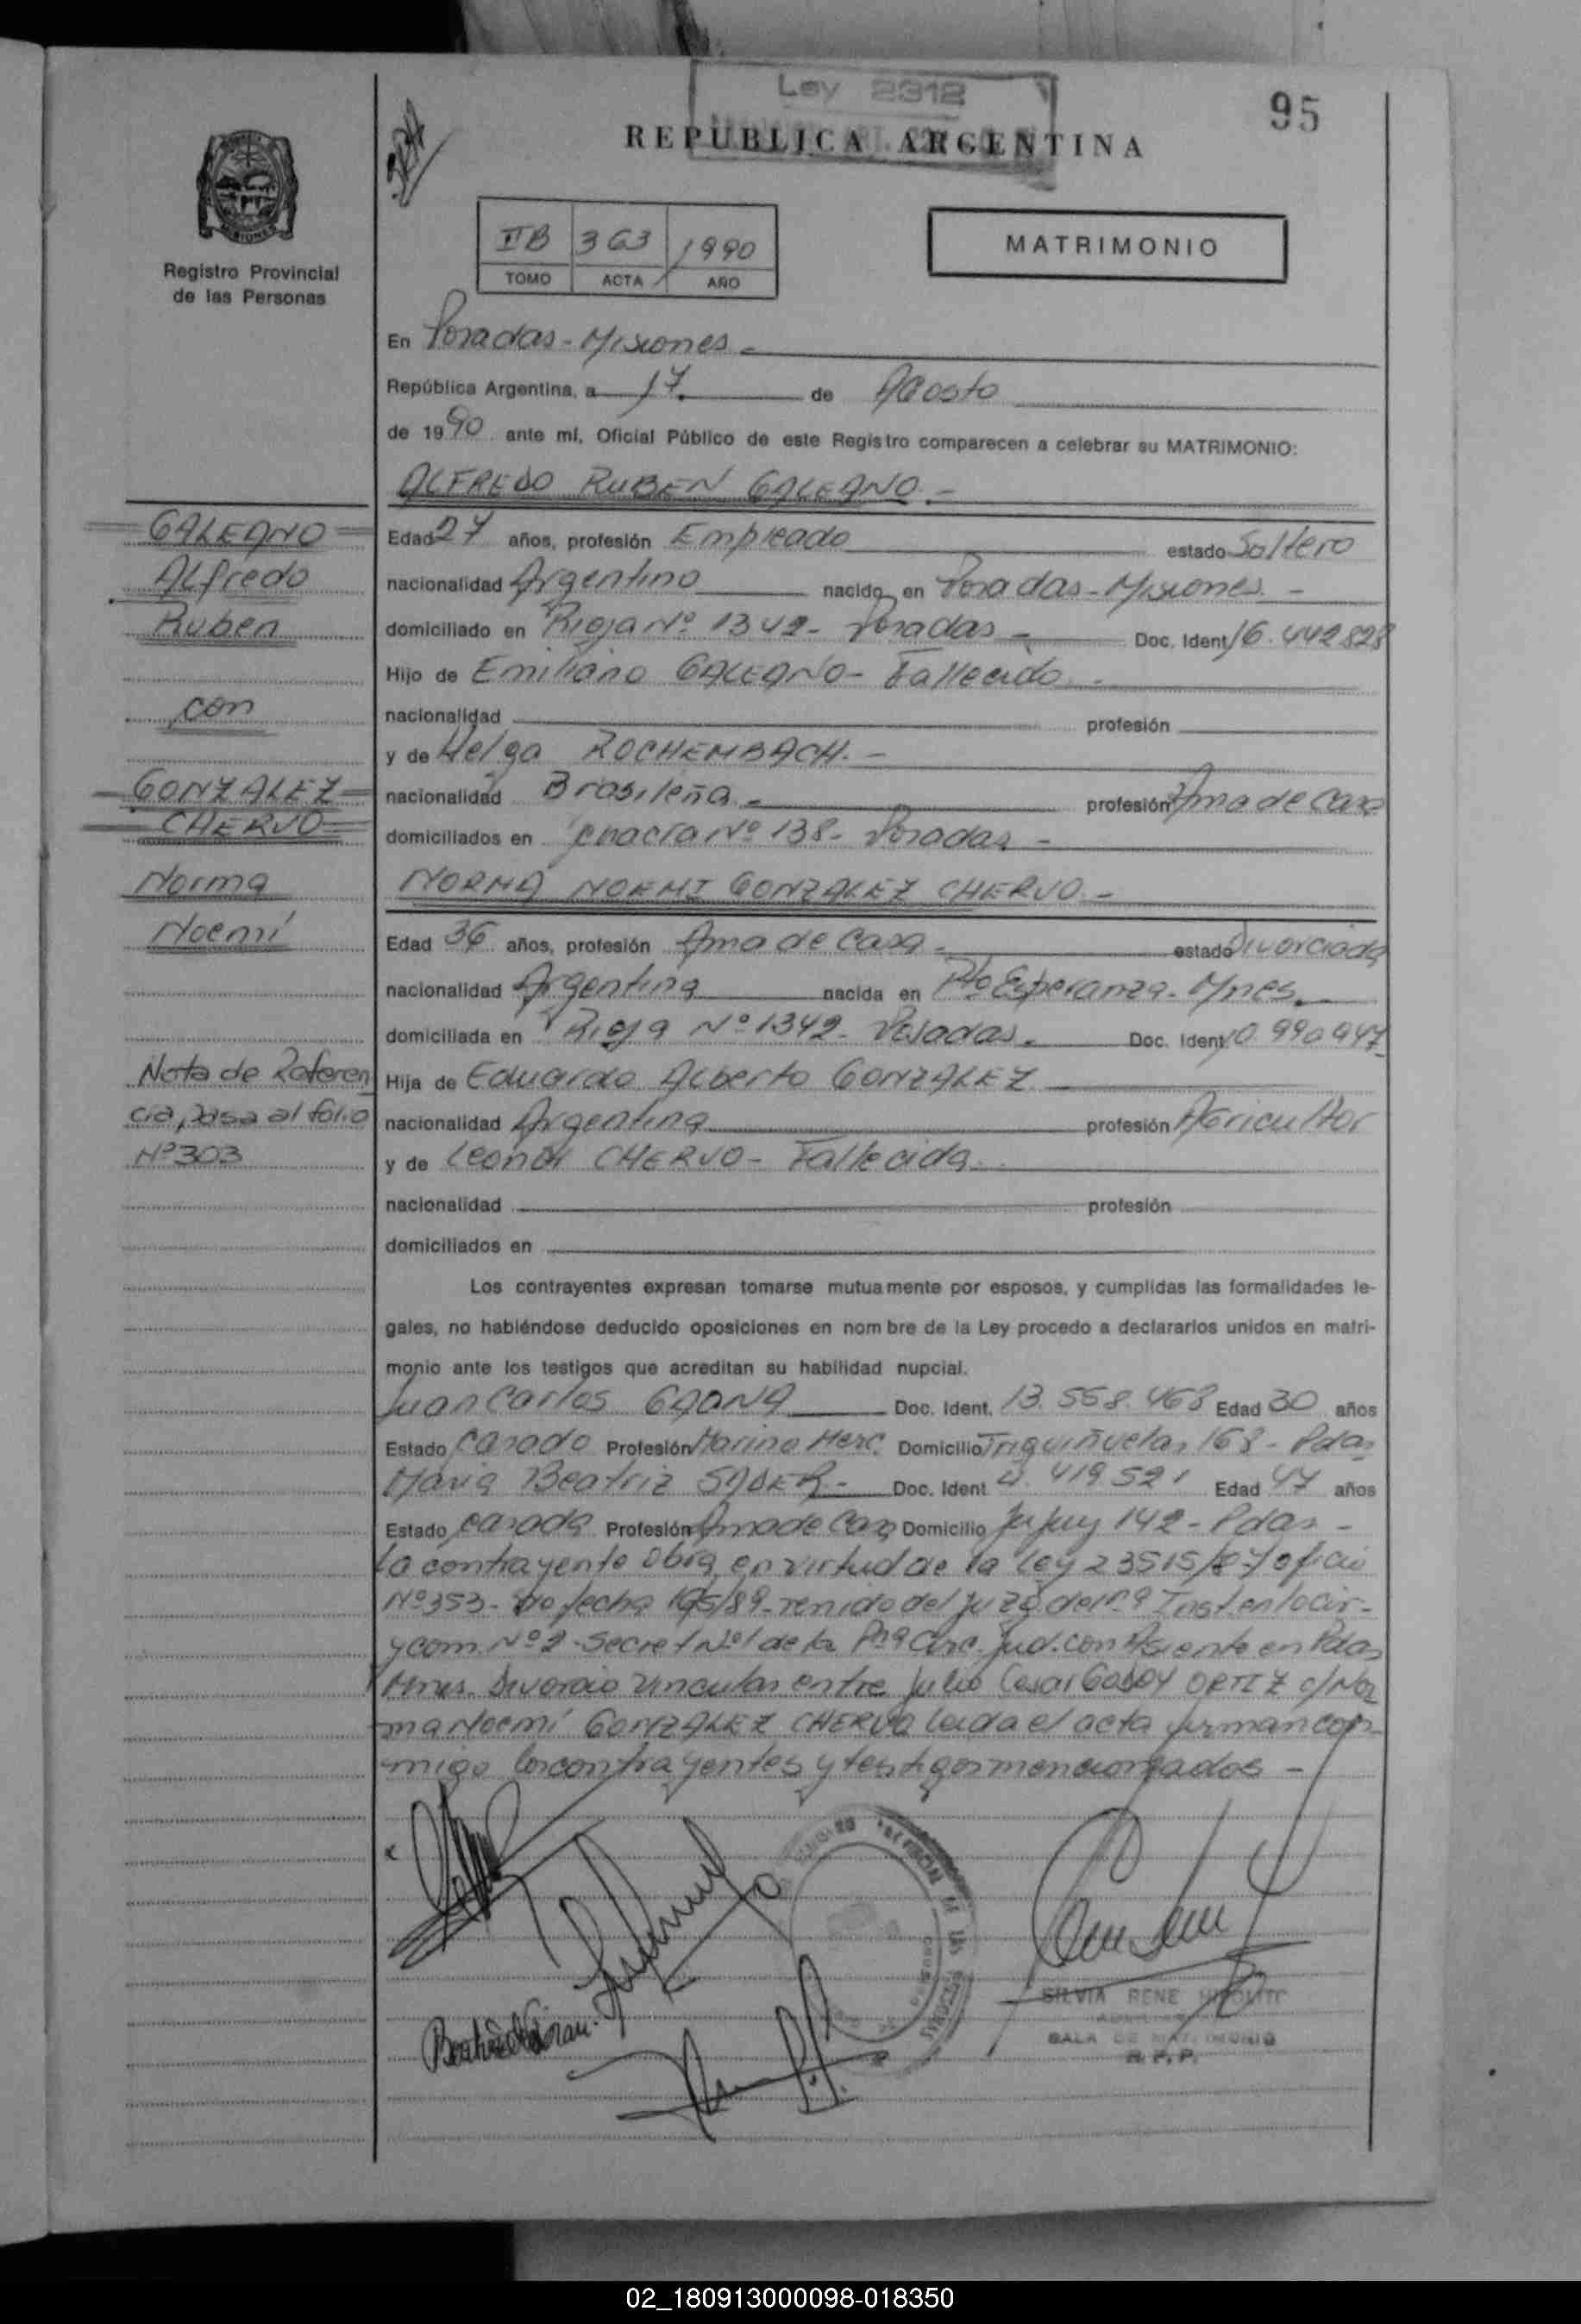 Ley 2312
95
REPUBLICA ARGENTINA
MISIONES
Registro Provincial
de las Personas
IIB 363 1990
TOMO ACTA AÑO
MATRIMONIO
En Posadas - Misiones -
República Argentina, a 17 de Agosto
de 1990 ante mí, Oficial Público de este Registro comparecen a celebrar su MATRIMONIO:
ALFREDO RUBEN GALEANO.-
GALEANO
Alfredo
Ruben
con
GONZALEZ
CHERVO
Norma
Noemí
Nota de Referen
cia, pasa al folio
Nº 303
Edad 27 años, profesión Empleado estado Soltero
nacionalidad Argentino nacido en Posadas - Misiones. -
domiciliado en Rioja Nº 1342 - Posadas - Doc. Ident 16.442828
Hijo de Emiliano GALEANO - Fallecido. -
nacionalidad profesión
y de Helga ROCHEMBACH. -
nacionalidad Brasileña - profesión Ama de Casa
domiciliados en Chacra Nº 138 - Posadas -
NORMA NOEMI GONZALEZ CHERVO. -
Edad 36 años, profesión Ama de Casa - estado Divorciada
nacionalidad Argentina nacida en Pto Esperanza - Mnes.
domiciliada en Rioja Nº 1342 - Posadas - Doc. Ident 10.990947
Hija de Eduardo Alberto GONZALEZ
nacionalidad Argentina profesión Agricultor
y de Leonor CHERVO - Fallecida.
nacionalidad profesión
domiciliados en
Los contrayentes expresan tomarse mutuamente por esposos, y cumplidas las formalidades le-
gales, no habiéndose deducido oposiciones en nombre de la Ley procedo a declararlos unidos en matri-
monio ante los testigos que acreditan su habilidad nupcial.
Juan Carlos GAONA Doc. Ident. 13.558.468 Edad 30 años
Estado Casado Profesión Marino Merc. Domicilio Triguiñuelas 168 - Pdas
Maria Beatriz SADER - Doc. Ident 4.419521 Edad 47 años
Estado Casada Profesión Ama de Casa Domicilio Jujuy 142 - Pdas -
La contrayente obra en virtud de la Ley 23515/87 oficio
Nº 353 - de fecha 19/5/89 - venido del Juzg. de 1ª Inst. en lo Civ. -
y com. Nº 2 - Secret Nº 1 de la Pra Circ. Jud. con Asiento en Pdas
Mnes. Divorcio Vincular entre Julio Cesar GODOY ORTIZ c/ Nor
ma Noemí GONZALEZ CHERVO leida el acta firman con-
migo los contrayentes y testigos mencionados -
SILVIA RENE HIPOLITO
SALA DE MATRIMONIO
R. P. P.
02_180913000098-018350